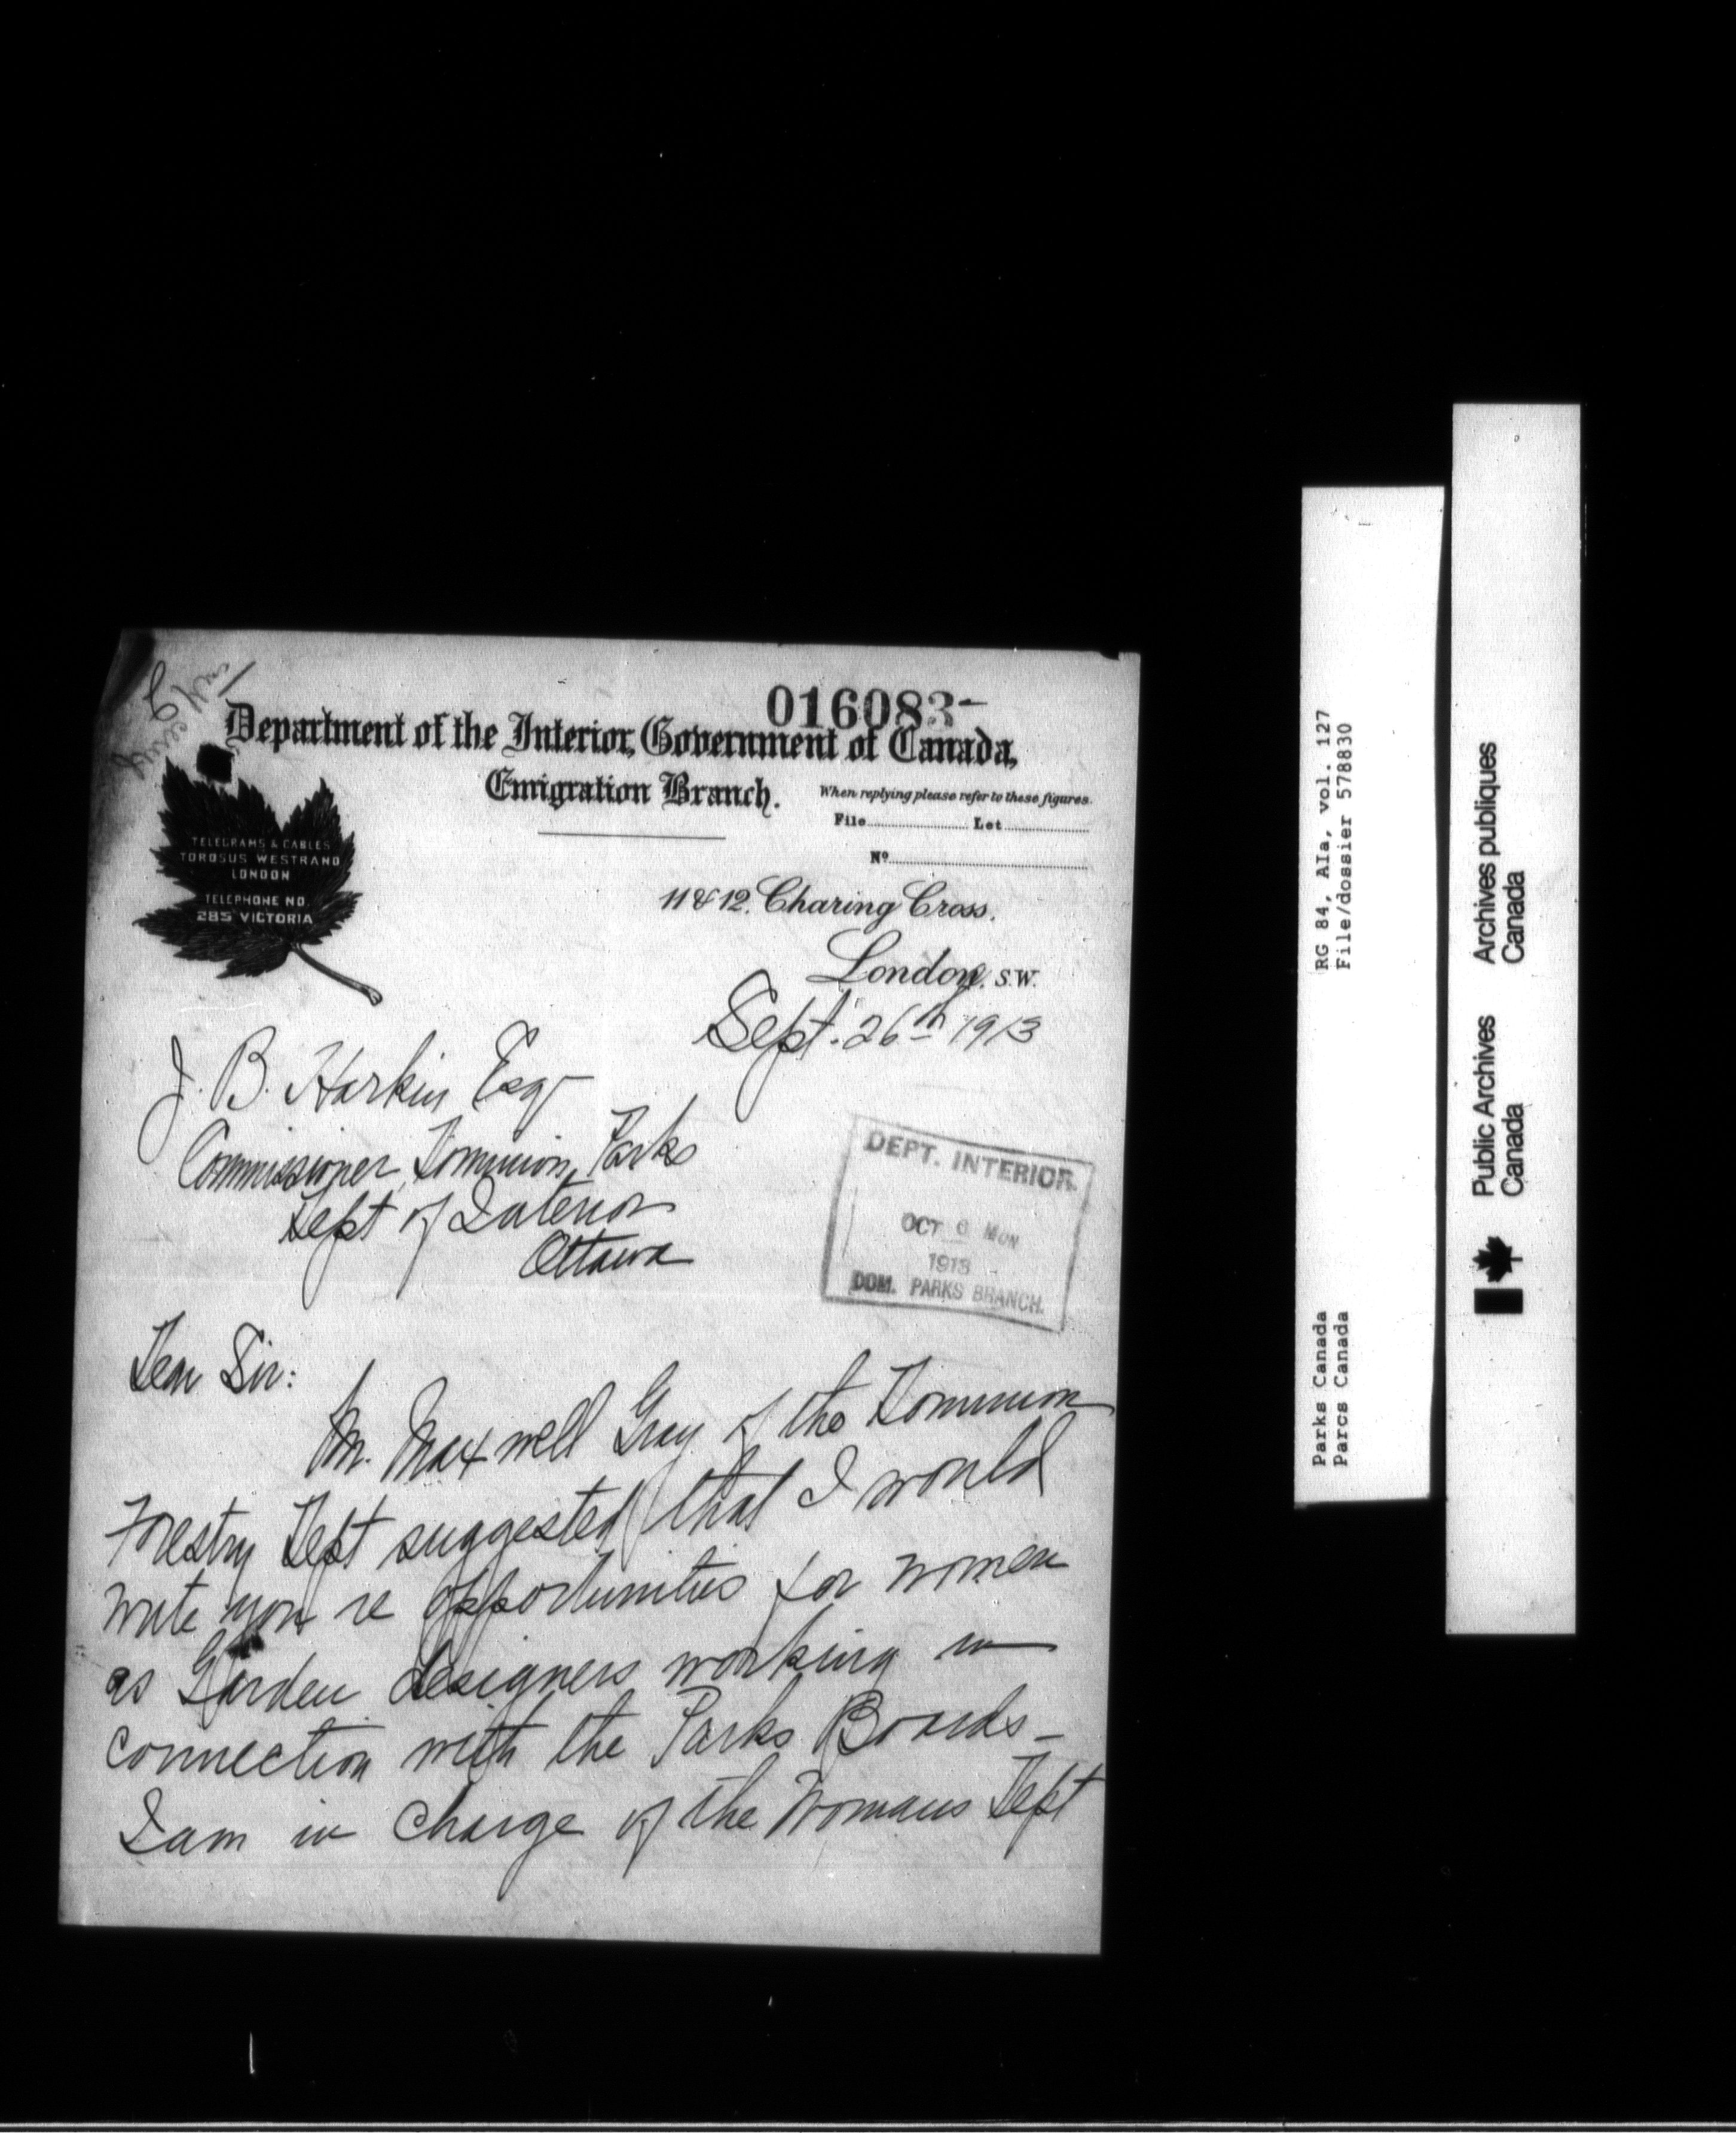 016083-
Department of the Interior, Government of Canada,
Emigration Branch.
When replying please refer to these figures.
File Let
Nº
TELEGRAMS & CABLES
TOROSUS WESTRAND
LONDON
TELEPHONE NO.
285 VICTORIA
11 & 12, Charing Cross,
London, S.W.
Sept. 26th 1913
J. B. Harkin Esq
Commissioner, Dominion Parks
Dept of Interior
Ottawa
DEPT. INTERIOR
OCT 6 MON
1913
DOM. PARKS BRANCH.
Dear Sir:
Mr. Maxwell Gray of the Dominion
Forestry Dept suggested that I would
write you re opportunities for women
as Garden designers working in
connection with the Parks Boards -
I am in charge of the Womans Dept
RG 84, AIa, vol. 127
File/dossier 578830
Parks Canada
Parcs Canada
Public Archives
Canada
Archives publiques
Canada